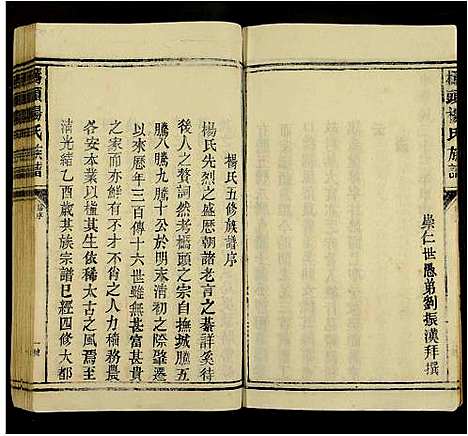 橋頭楊氏族譜
崇仁世愚弟劉振漢拜撰
楊氏五修族譜序
楊氏先烈之盛歷朝諸老言之綦詳奚待
後人之贅詞然考橋頭之宗自撫城騰五
騰八騰九騰十公於明末清初之際肇遷
以來歷年三百傳十六世雖無甚富甚貴
之家而亦鮮有不才不肖之人力穡務農
各安本業以楹其生依稀太古之風焉至
清光緒乙酉歲其族宗譜已經四修大都
橋頭楊氏族譜